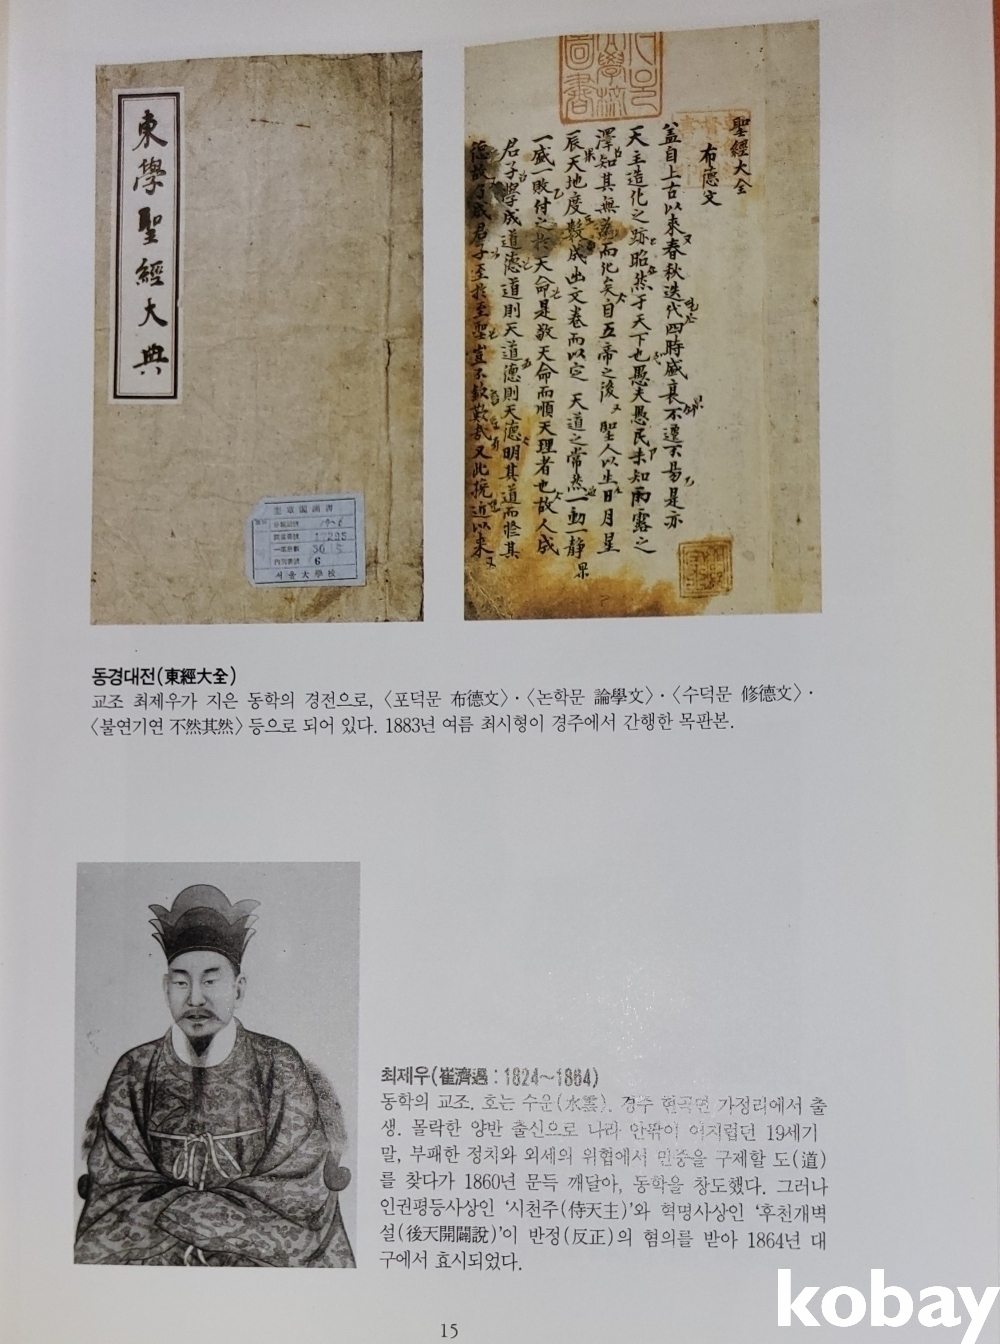 東學聖經大典
奎章閣圖書
서울大學校
聖經大全
布德文
盖自上古以來春秋迭代四時盛衰不遷不易是亦
天主造化之跡昭然于天下也愚夫愚民未知雨露之
澤知其無爲而化矣自五帝之後聖人以生日月星
辰天地度數成出文卷而以定天道之常然一動一靜
一盛一敗付之於天命是敬天命而順天理者也故人成
君子學成道德道則天道德則天德明其道而修其
德故乃成君子至於至聖豈不欽歎哉又此挽近以來
동경대전(東經大全)
교조 최제우가 지은 동학의 경전으로, 〈포덕문 布德文〉·〈논학문 論學文〉·〈수덕문 修德文〉·
〈불연기연 不然其然〉 등으로 되어 있다. 1883년 여름 최시형이 경주에서 간행한 목판본.
최제우(崔濟遇 : 1824~1864)
동학의 교조. 호는 수운(水雲). 경주 현곡면 가정리에서 출
생. 몰락한 양반 출신으로 나라 안팎이 어지럽던 19세기
말, 부패한 정치와 외세의 위협에서 민중을 구제할 도(道)
를 찾다가 1860년 문득 깨달아, 동학을 창도했다. 그러나
인권평등사상인 '시천주(侍天主)'와 혁명사상인 '후천개벽
설(後天開闢說)'이 반정(反正)의 혐의를 받아 1864년 대
구에서 효시되었다.
15
kobay